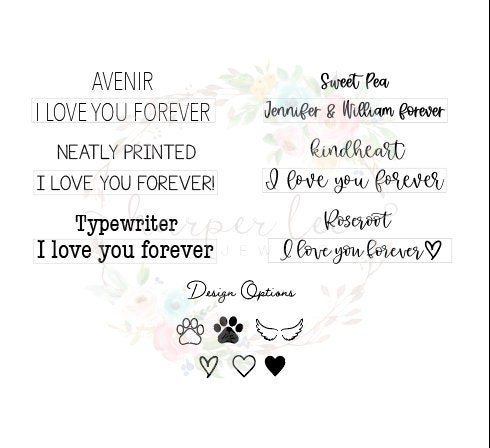 AVENIR
I LOVE YOU FOREVER
NEATLY PRINTED
I LOVE YOU FOREVER!
Typewriter
I love you forever
Sweet Pea
Jennifer & William forever
kindheart
I love you forever
Roseroot
I love you forever
Design Options